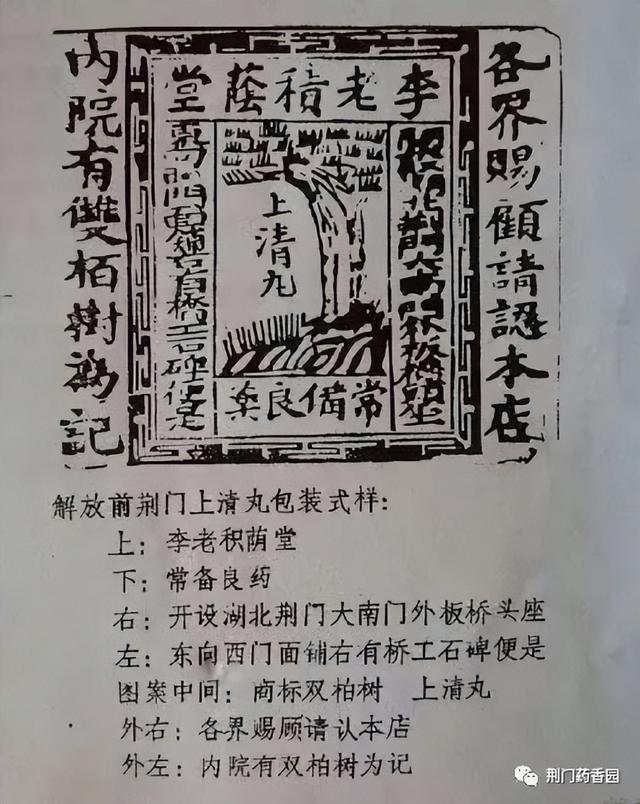 各界賜顧請認本店
李老積蔭堂
上清丸
常備良藥
內院有雙栢樹為記
解放前荆门上清丸包装式样：
上：李老积荫堂
下：常备良药
右：开设湖北荆门大南门外板桥头座
左：东向西门面铺右有桥工石碑便是
图案中间：商标双柏树 上清丸
外右：各界赐顾请认本店
外左：内院有双柏树为记
荆门药香园